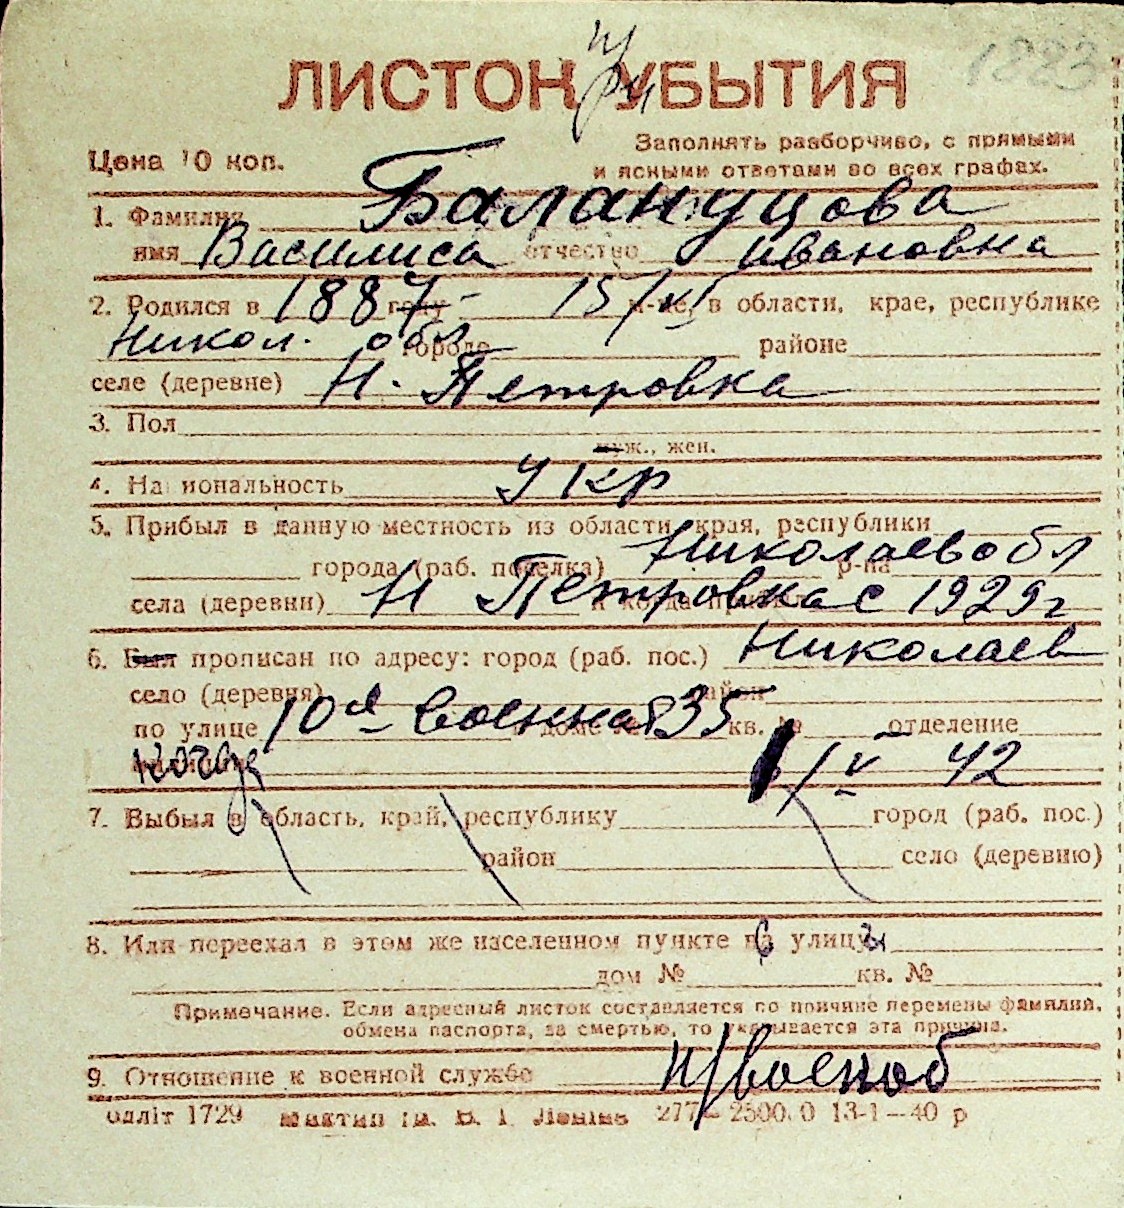 1883
ЛИСТОК УБЫТИЯ
Цена 10 коп.
Заполнять разборчиво, с прямыми
и ясными ответами во всех графах.
1. Фамилия Балануцова
имя Василиса отчество Ивановна
2. Родился в 1887 году - 15/XI м-це, в области, крае, республике
Никол. обл городе районе
селе (деревне) Н. Петровка
3. Пол
муж., жен.
4. Национальность Укр
5. Прибыл в данную местность из области, края, республики
Николаев обл
города (раб. поселка) р-на
села (деревни) Н Петровка с 1929 г
6. Был прописан по адресу: город (раб. пос.) Николаев
село (деревня) район
по улице 10я Военная 35 кв. № отделение
когда /V 42
7. Выбыл в область, край, республику город (раб. пос.)
район село (деревню)
8. Или переехал в этом же населенном пункте на улицу
дом № кв. №
Примечание. Если адресный листок составляется по причине перемены фамилии,
обмена паспорта, за смертью, то указывается эта причина.
9. Отношение к военной службе н/военноб
Одліт 1729 ім. В. І. Леніна 277 – 2500.0 13-1–40 р